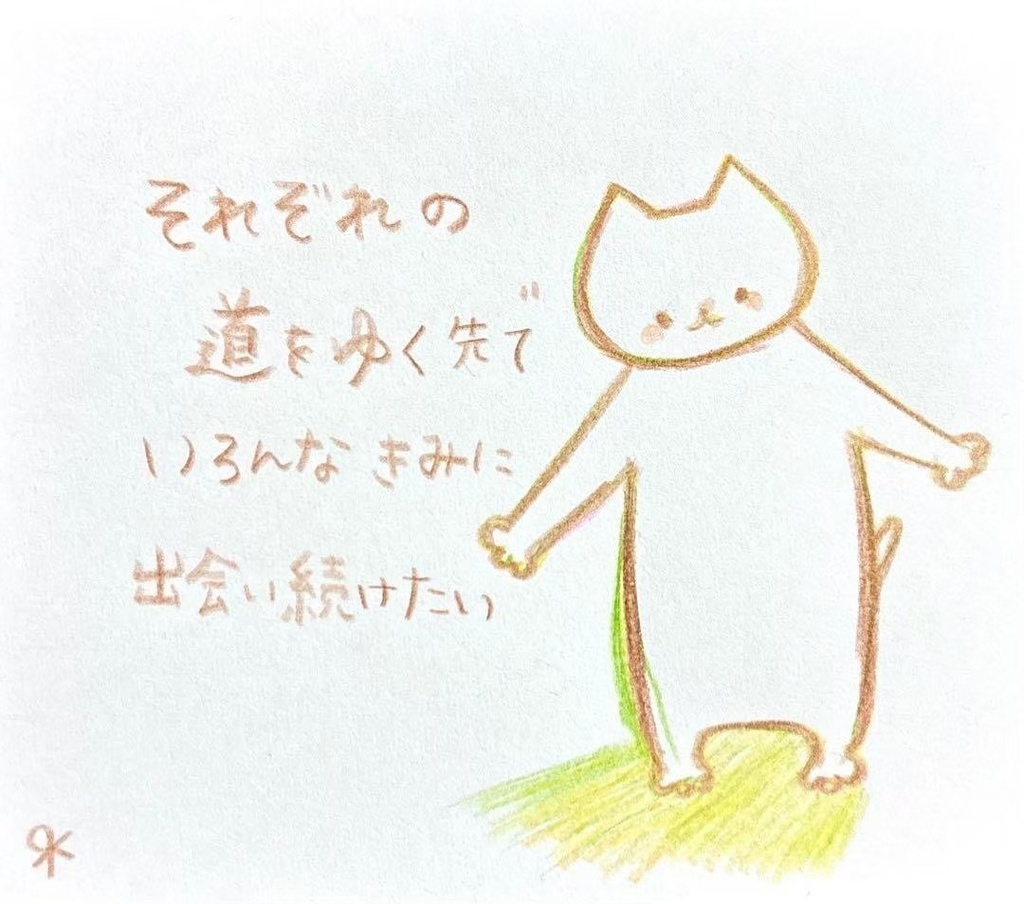 それぞれの
道をゆく先で
いろんなきみに
出会い続けたい